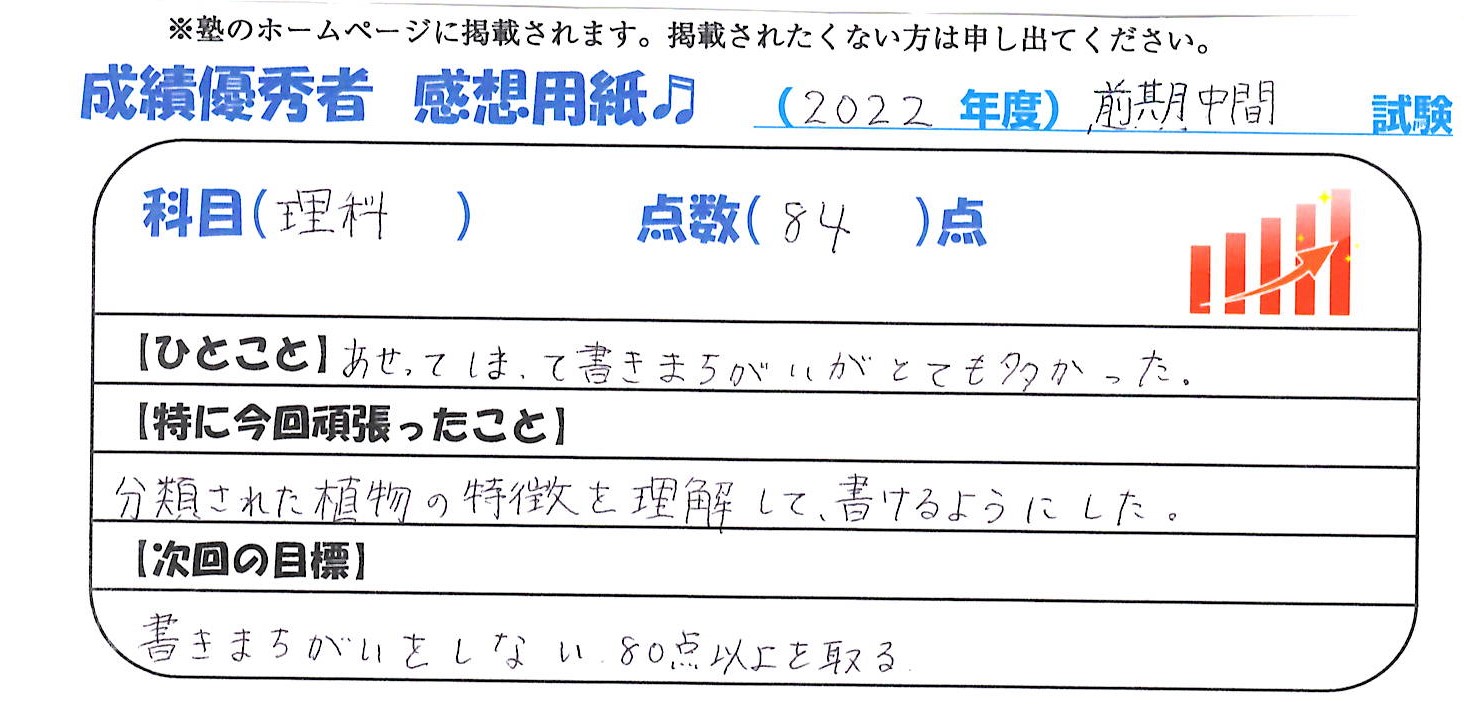 ※塾のホームページに掲載されます。掲載されたくない方は申し出てください。
成績優秀者 感想用紙♫ (2022 年度) 前期中間 試験
科目(理科 ) 点数( 84 )点
【ひとこと】あせってしまって書きまちがいがとても多かった。
【特に今回頑張ったこと】
分類された植物の特徴を理解して、書けるようにした。
【次回の目標】
書きまちがいをしない.80点以上を取る.